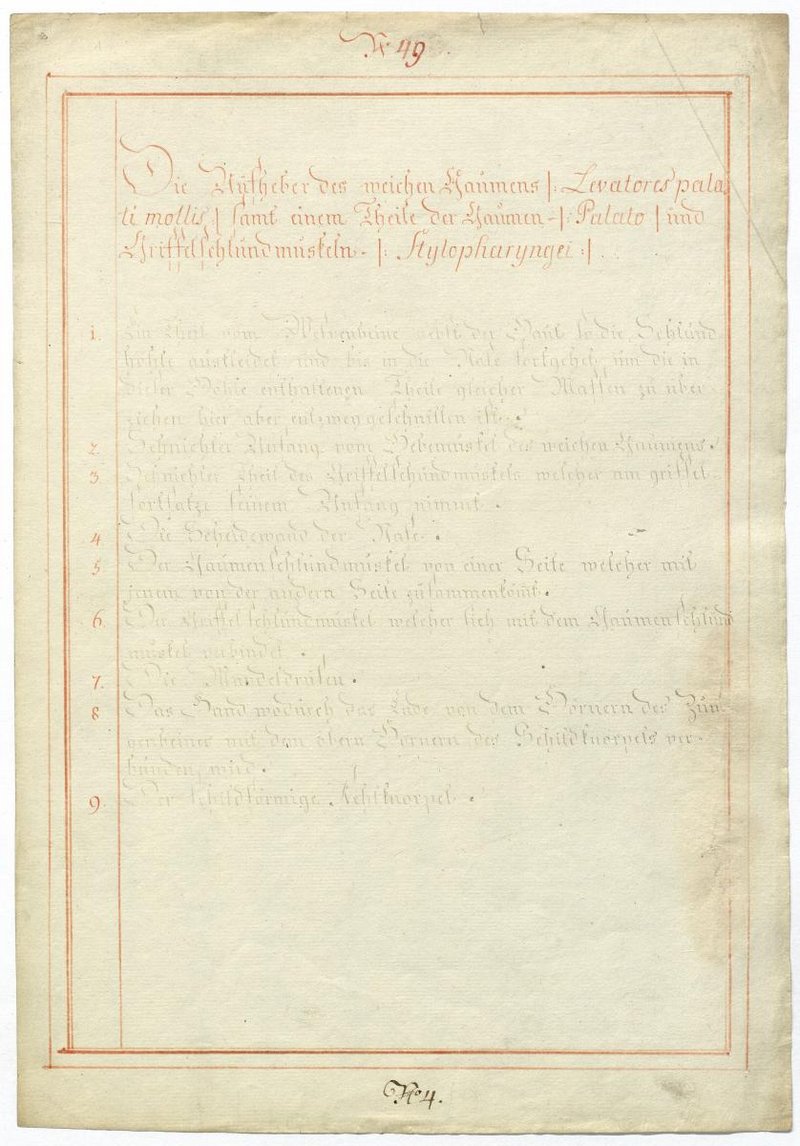 No 49.
Die Aufheber des weichen Gaumens |: Levatores pala
ti mollis :| samt einem Theile der Gaumen- |: Palato :| und
Griffelschlundmuskeln- |: Stylopharyngei :|
1. Ein Theil vom Keilbeine nebst der Haut so die Schlund
höhle auskleidet und bis in die Nase fortgehet, um die in
dieser Höhle enthaltenen Theile gleicher Massen zu über-
ziehen hier aber entzwey geschnitten ist.
2. Sehnichter Anfang vom Hebemuskel des weichen Gaumens.
3 Sehnichter Theil des Griffelschlundmuskels welcher am griffel-
fortsatze seinem Anfang nimmt.
4 Die Scheidewand der Nase.
5 Der Gaumenschlundmuskel von einer Seite welcher mit
jenem von der andern Seite zusammenkömt.
6. Der Griffelschlundmuskel welcher sich mit dem Gaumenschlund
muskel verbindet.
7. Die Mandeldrüsen.
8 Das Band wodurch das Ende von dem Hörnern des Zun-
genbeines mit den obern Hörnern des Schildknorpels ver-
bunden wird.
9. Der schildförmige Kehlknorpel.
No 4.